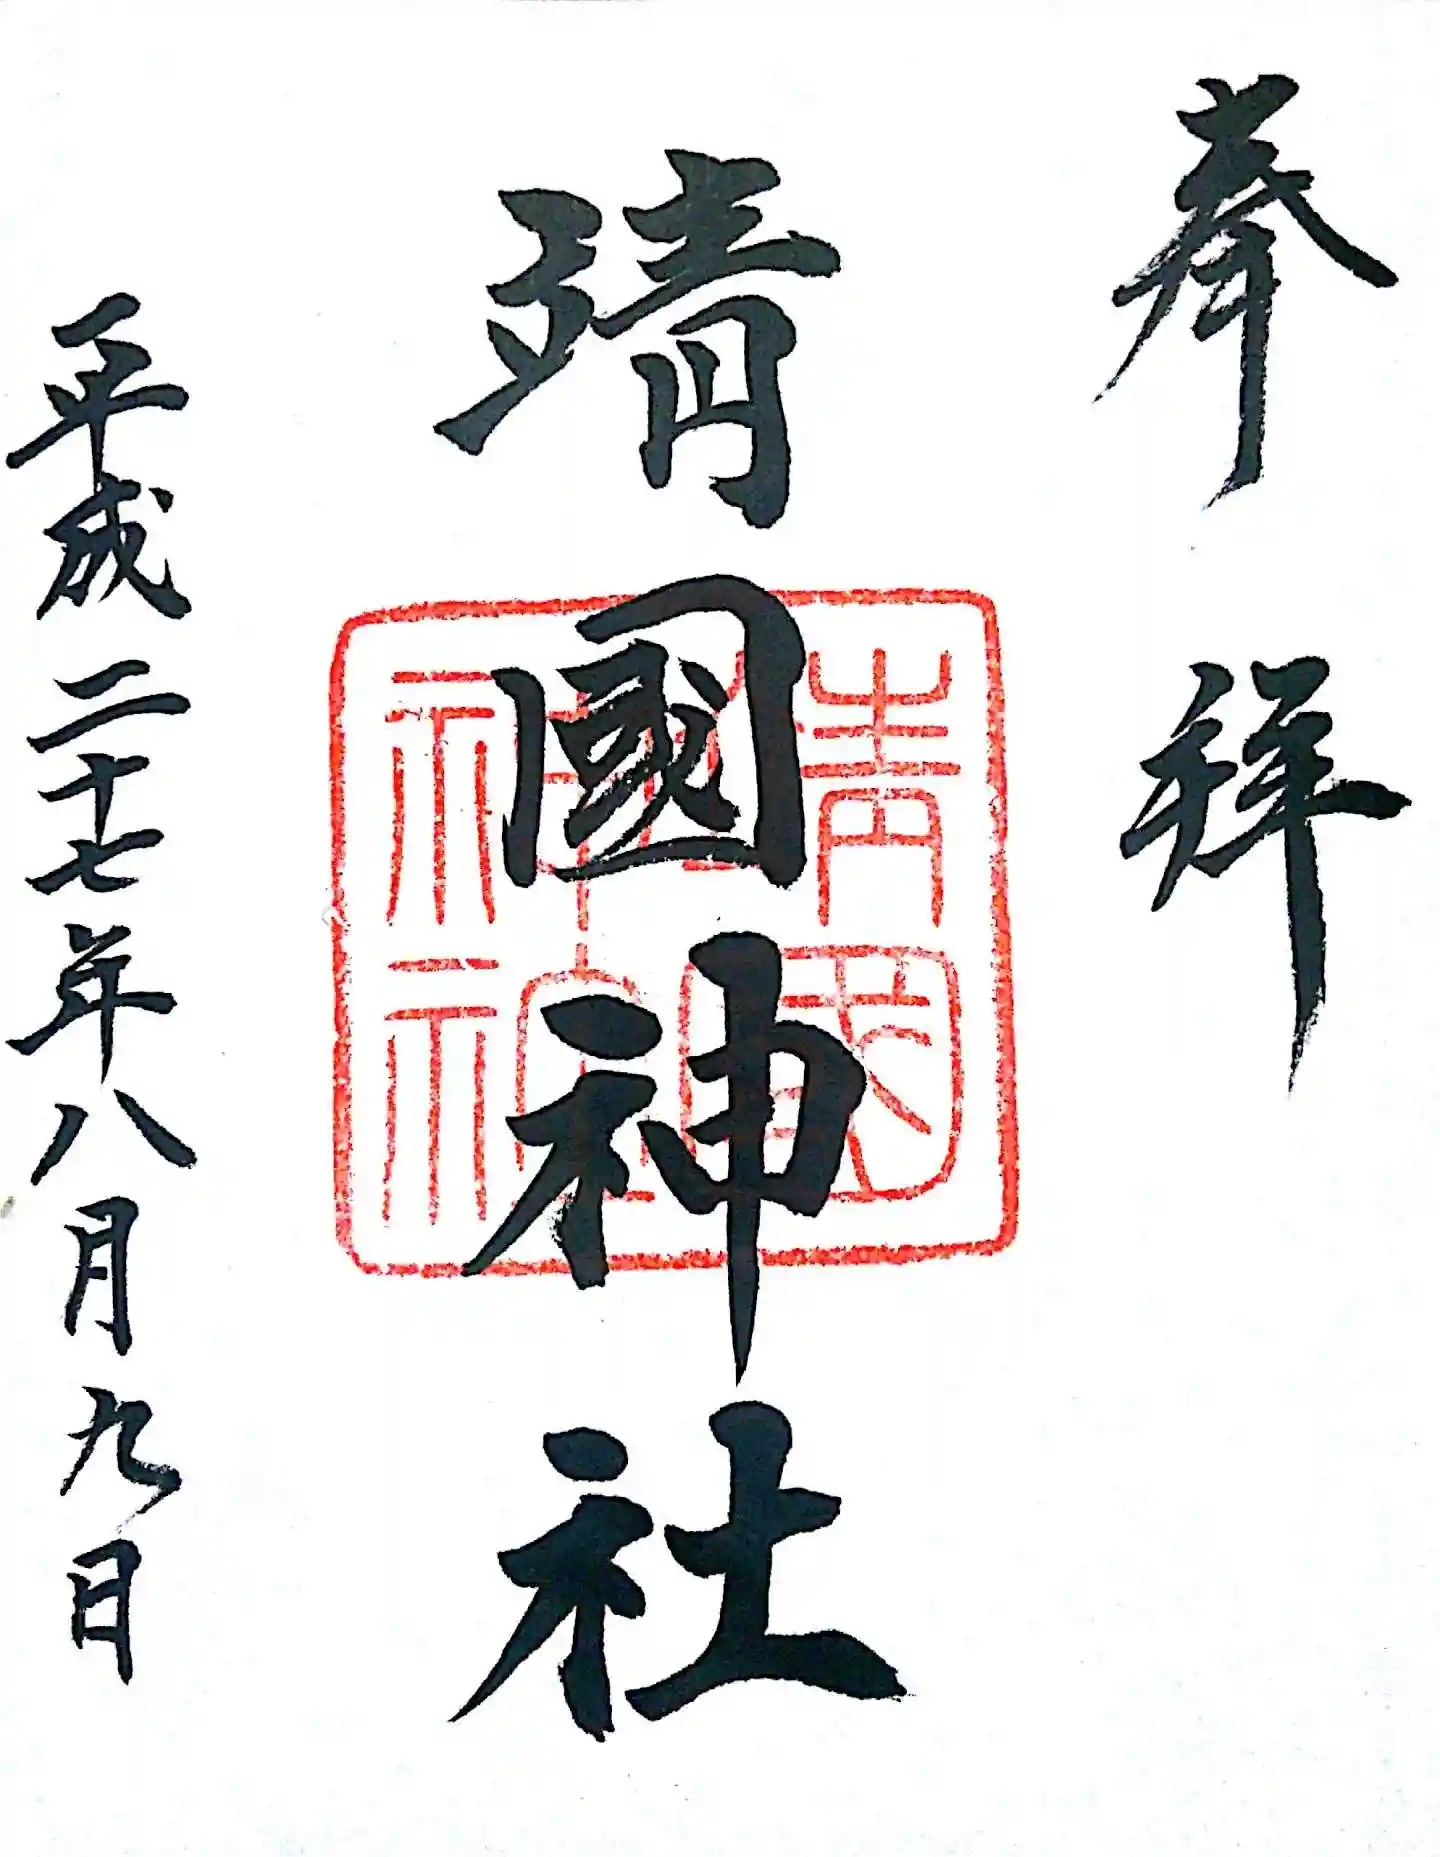 奉拜
靖國神社
靖国神社
平成二十七年八月九日